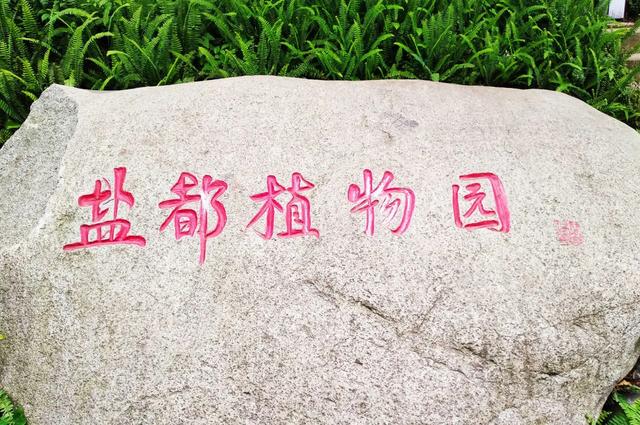 盐都植物园